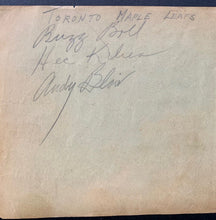 TORONTO MAPLE LEAFS
Buzz Boll
Hec Kilrea
Andy Blair